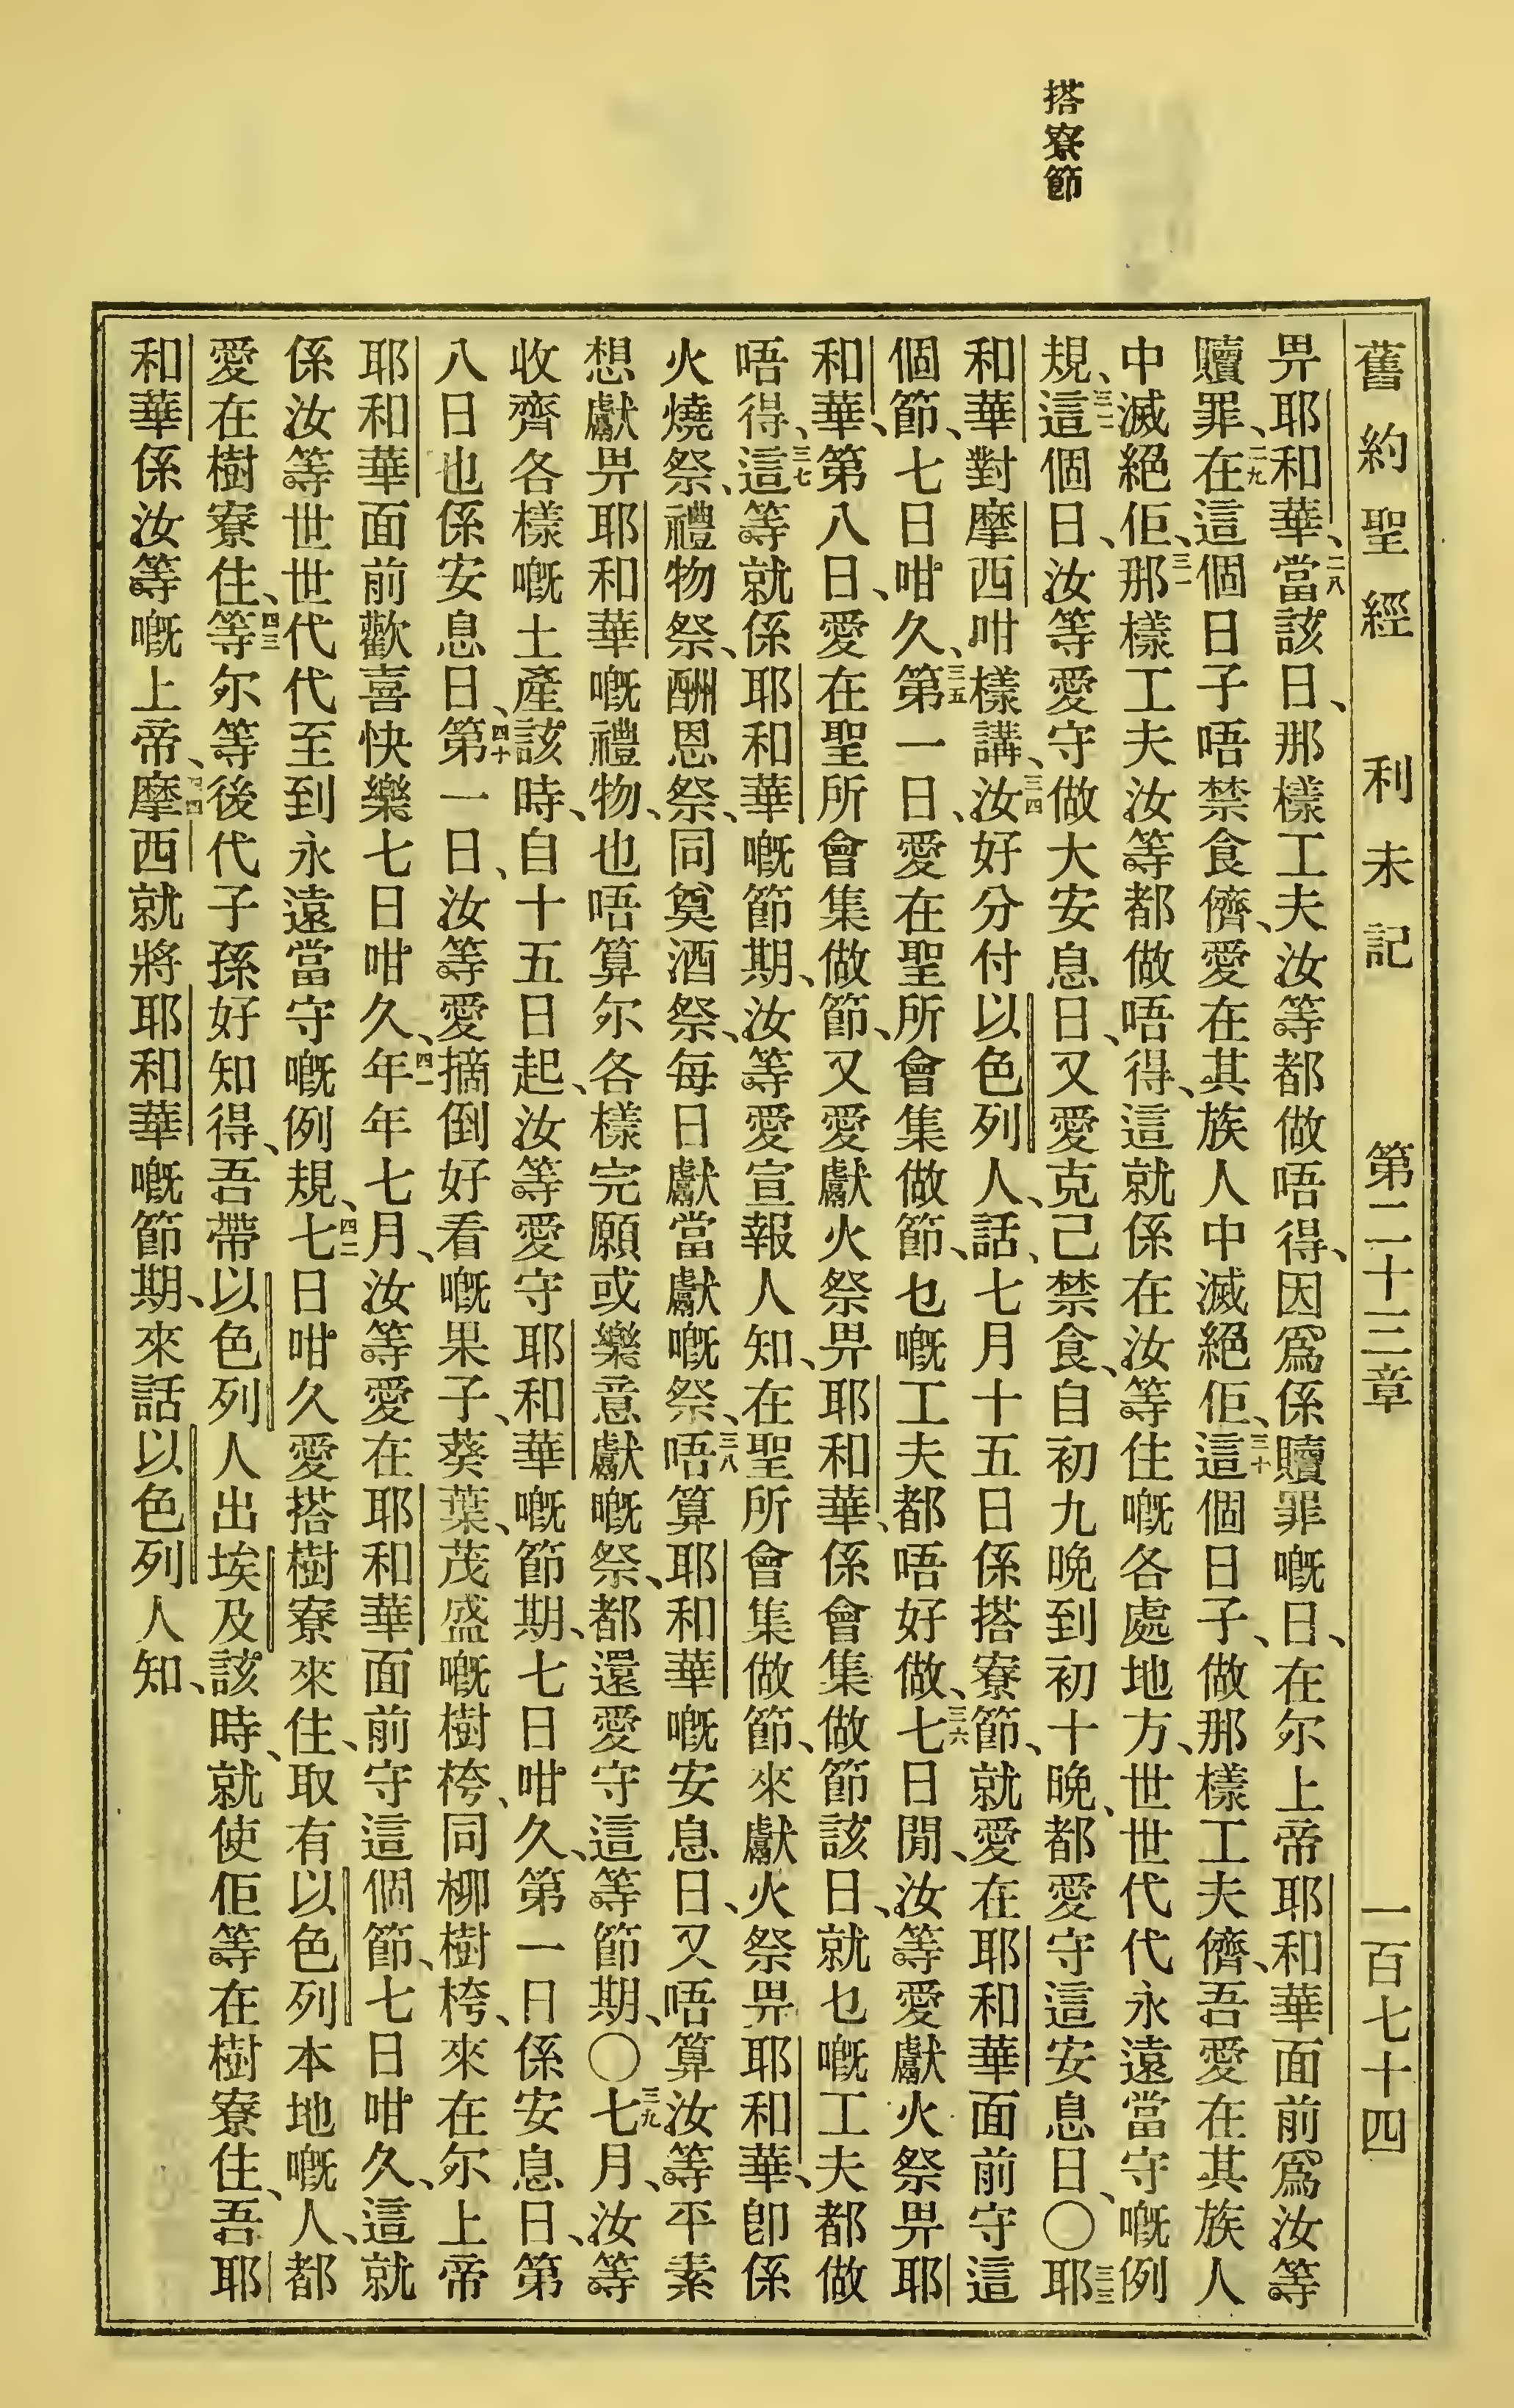 搭寮節
舊約聖經 利未記 第二十三章 一百七十四
畀耶和華、二八當該日、那樣工夫汝等都做唔得、因爲係贖罪嘅日、在尔上帝耶和華面前爲汝等
贖罪、二九在這個日子唔禁食儕、愛在其族人中滅絕佢、三十這個日子、做那樣工夫儕、吾愛在其族人
中滅絕佢、三一那樣工夫汝等都做唔得、這就係在汝等住嘅各處地方、世世代代永遠當守嘅例
規、三二這個日、汝等愛守做大安息日、又愛克己禁食、自初九晚到初十晚、都愛守這安息日、〇三三耶
和華對摩西咁樣講、三四汝好分付以色列人、話、七月十五日係搭寮節、就愛在耶和華面前守這
個節、七日咁久、三五第一日、愛在聖所會集做節、乜嘅工夫都唔好做、三六七日閒、汝等愛獻火祭畀耶
和華、第八日、愛在聖所會集做節、又愛獻火祭畀耶和華、係會集做節該日、就乜嘅工夫都做
唔得、三七這等就係耶和華嘅節期、汝等愛宣報人知、在聖所會集做節、來獻火祭畀耶和華、卽係
火燒祭、禮物祭、酬恩祭、同奠酒祭、每日獻當獻嘅祭、三八唔算耶和華嘅安息日、又唔算汝等平素
想獻畀耶和華嘅禮物、也唔算尔各樣完願或樂意獻嘅祭、都還愛守這等節期、〇三九七月、汝等
收齊各樣嘅土產該時、自十五日起、汝等愛守耶和華嘅節期、七日咁久、第一日係安息日、第
八日也係安息日、四十第一日、汝等愛摘倒好看嘅果子、葵葉、茂盛嘅樹桍、同柳樹桍、來在尔上帝
耶和華面前歡喜快樂七日咁久、四一年年七月、汝等愛在耶和華面前守這個節、七日咁久、這就
係汝等世世代代至到永遠當守嘅例規、四二七日咁久愛搭樹寮來住、取有以色列本地嘅人、都
愛在樹寮住、四三等尔等後代子孫好知得、吾帶以色列人出埃及該時、就使佢等在樹寮住、吾耶
和華係汝等嘅上帝、四四摩西就將耶和華嘅節期、來話以色列人知、